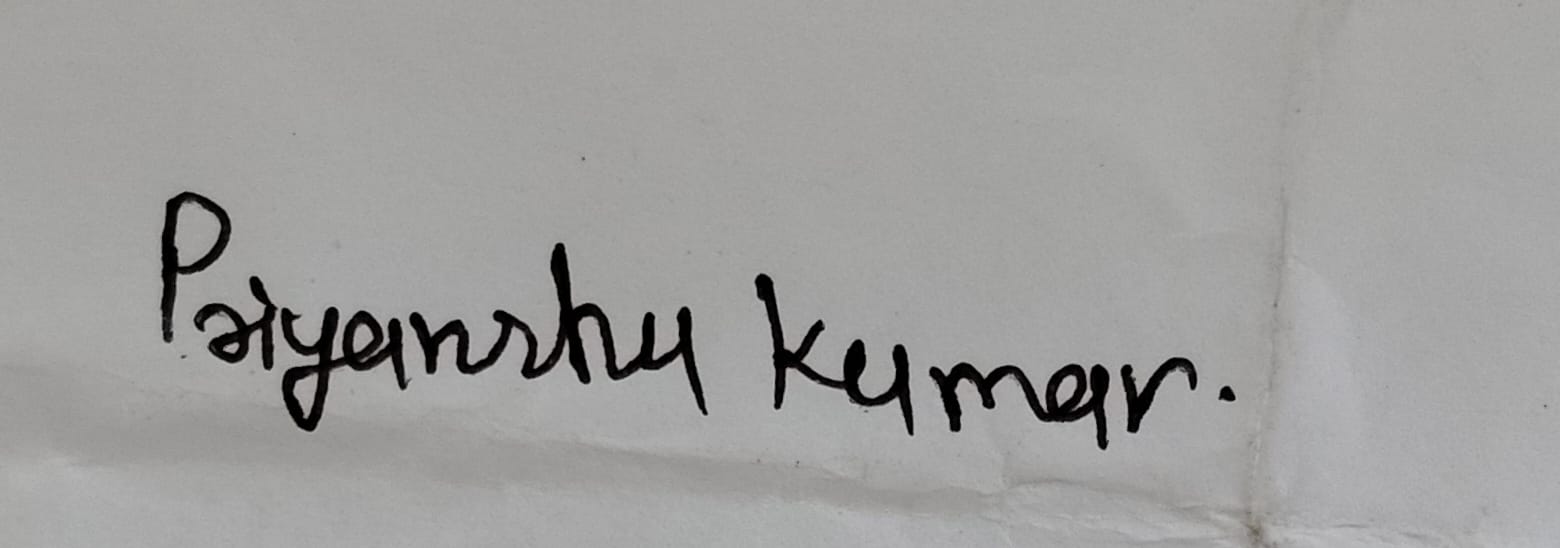 Priyanshu Kumar.